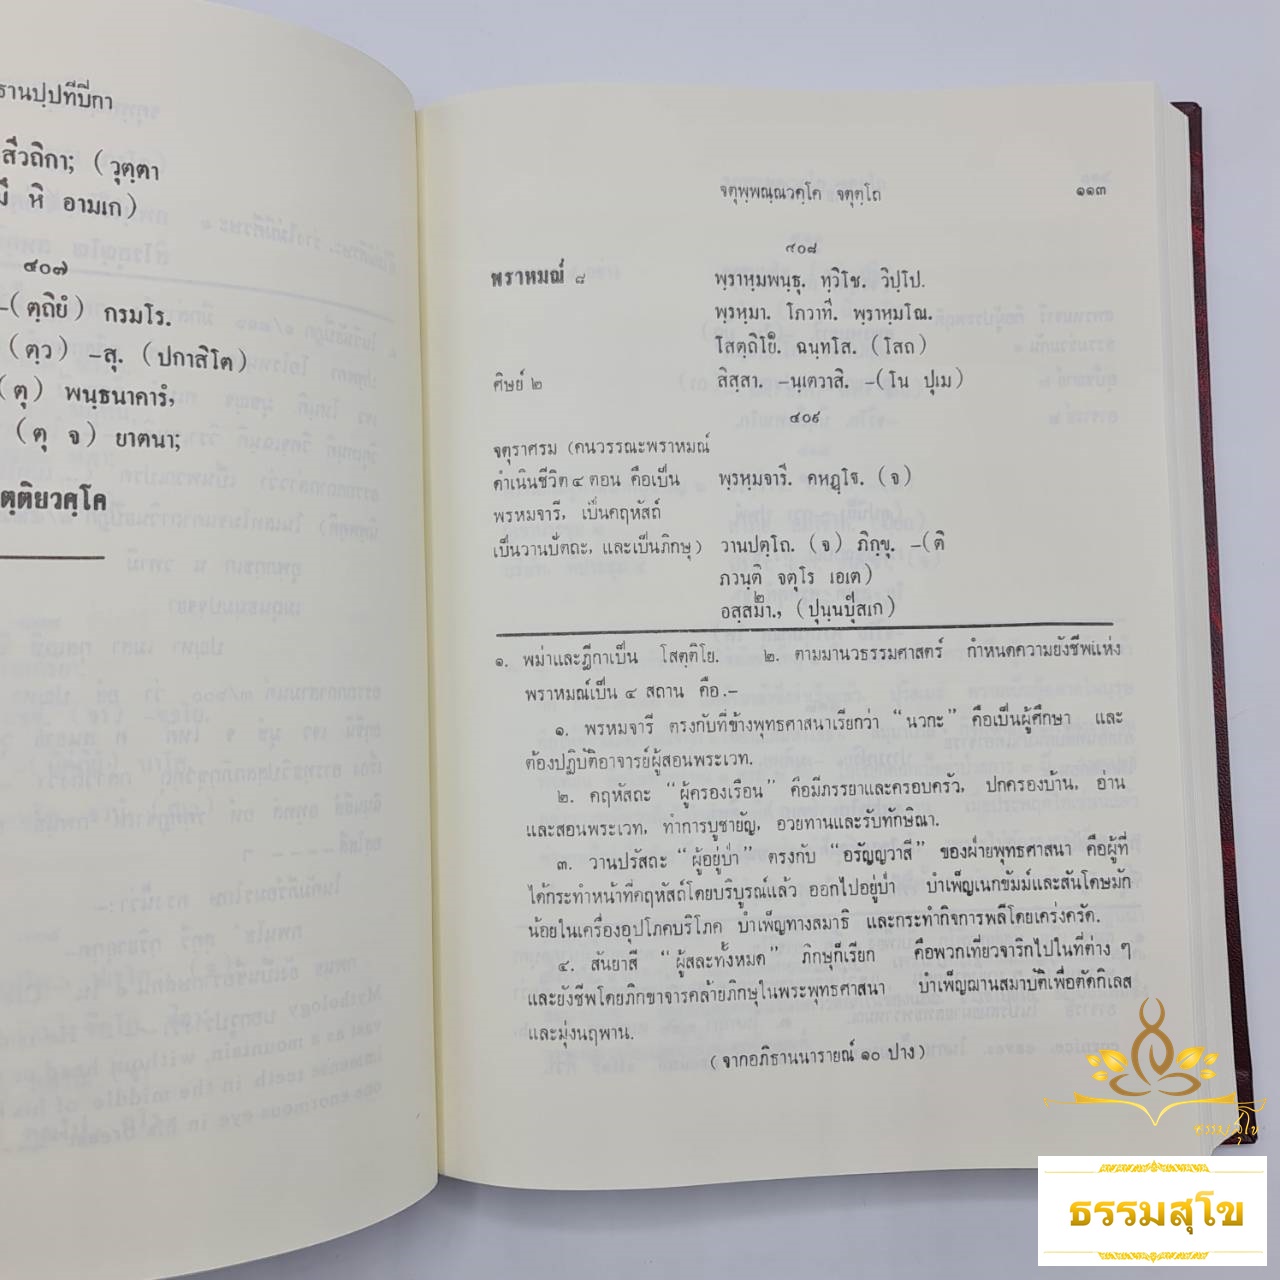 ธานปฺปทีปิกา
สีวถิกา; (วุตฺตา
หิ อามเก)
๔๐๗
-(ตฺถิยํ) กรมโร.
(ตฺว) -สุ. (ปกาสิโต)
(ตุ) พนฺธนาคารํ,
(ตุ จ) ยาตนา;
ตฺติยวคฺโค
จตุพฺพณฺณวคฺโค จตุตฺโถ ๑๑๓
๔๐๘
พราหมณ์ ๘ พฺราหฺมพนฺธุ. ทฺวิโช. วิปฺโป.
พฺรหฺมา. โภวาที. พฺราหฺมโณ.
โสตฺถิโย๑. ฉนฺทโส. (โสถ)
ศิษย์ ๒ สิสฺสา. -นฺเตวาสิ. -(โน ปุเม)
๔๐๙
จตุราศรม (คนวรรณะพราหมณ์
ดำเนินชีวิต ๔ ตอน คือเป็น พฺรหฺมจารี. คหฏฺโฐ. (จ)
พรหมจารี, เป็นคฤหัสถ์
เป็นวานปัตถะ, และเป็นภิกษุ) วานปตฺโถ. (จ) ภิกฺขุ. -(ติ
ภวนฺติ จตุโร เอเต)
อสฺสมา๒., (ปุนฺนปุํสเก)
๑. พม่าและฎีกาเป็น โสตฺติโย. ๒. ตามมานวธรรมศาสตร์ กำหนดความยังชีพแห่ง
พราหมณ์เป็น ๔ สถาน คือ.–
๑. พรหมจารี ตรงกับที่ข้างพุทธศาสนาเรียกว่า “นวกะ” คือเป็นผู้ศึกษา และ
ต้องปฏิบัติอาจารย์ผู้สอนพระเวท.
๒. คฤหัสถะ “ผู้ครองเรือน” คือมีภรรยาและครอบครัว, ปกครองบ้าน, อ่าน
และสอนพระเวท, ทำการบูชายัญ, อวยทานและรับทักษิณา.
๓. วานปรัสถะ “ผู้อยู่ป่า” ตรงกับ “อรัญญวาสี” ของฝ่ายพุทธศาสนา คือผู้ที่
ได้กระทำหน้าที่คฤหัสถ์โดยบริบูรณ์แล้ว ออกไปอยู่ป่า บำเพ็ญเนกขัมม์และสันโดษมัก
น้อยในเครื่องอุปโภคบริโภค บำเพ็ญทางสมาธิ และกระทำกิจการพลีโดยเคร่งครัด.
๔. สันยาสี “ผู้สละทั้งหมด” ภิกษุก็เรียก คือพวกเที่ยวจาริกไปในที่ต่าง ๆ
และยังชีพโดยภิกขาจารคล้ายภิกษุในพระพุทธศาสนา บำเพ็ญฌานสมาบัติเพื่อตัดกิเลส
และมุ่งนฤพาน.
(จากอภิธานนารายณ์ ๑๐ ปาง)
ธรรมสุโข
ธรรมสุโข